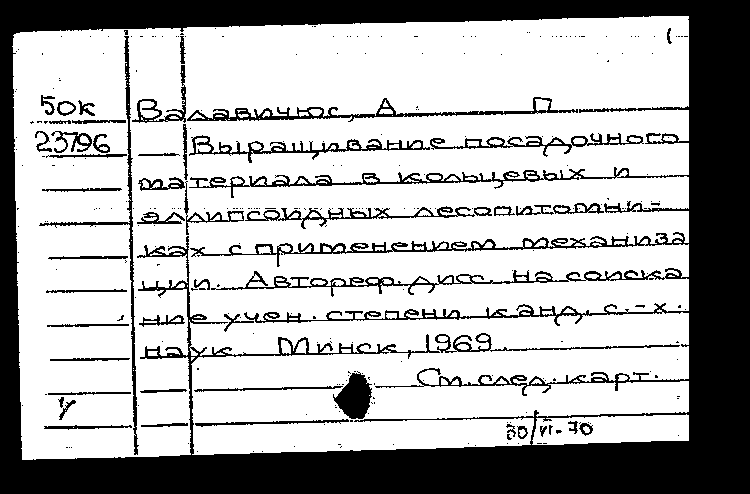 50к Валавичюс, А. П
23796 Выращивание посадочного
материала в кольцевых и
эллипсоидных лесопитомни-
ках с применением механиза
ции. Автореф. дисс. на соиска
ние учен. степени канд. с.-х.
наук. Минск, 1969.
См. след. карт.
30/VI-70